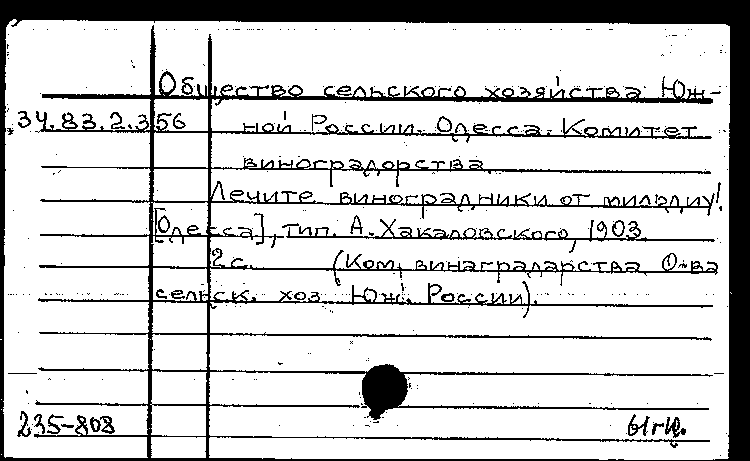 Общество сельского хозяйства Юж-
34.83.2.356 ной России. Одесса. Комитет
виноградорства.
Лечите виноградники от милдиу!
[Одесса], тип. А. Хакаловского, 1903.
2 с. (Ком. винаградарства О-ва
сельск. хоз. Юж. России).
235-808